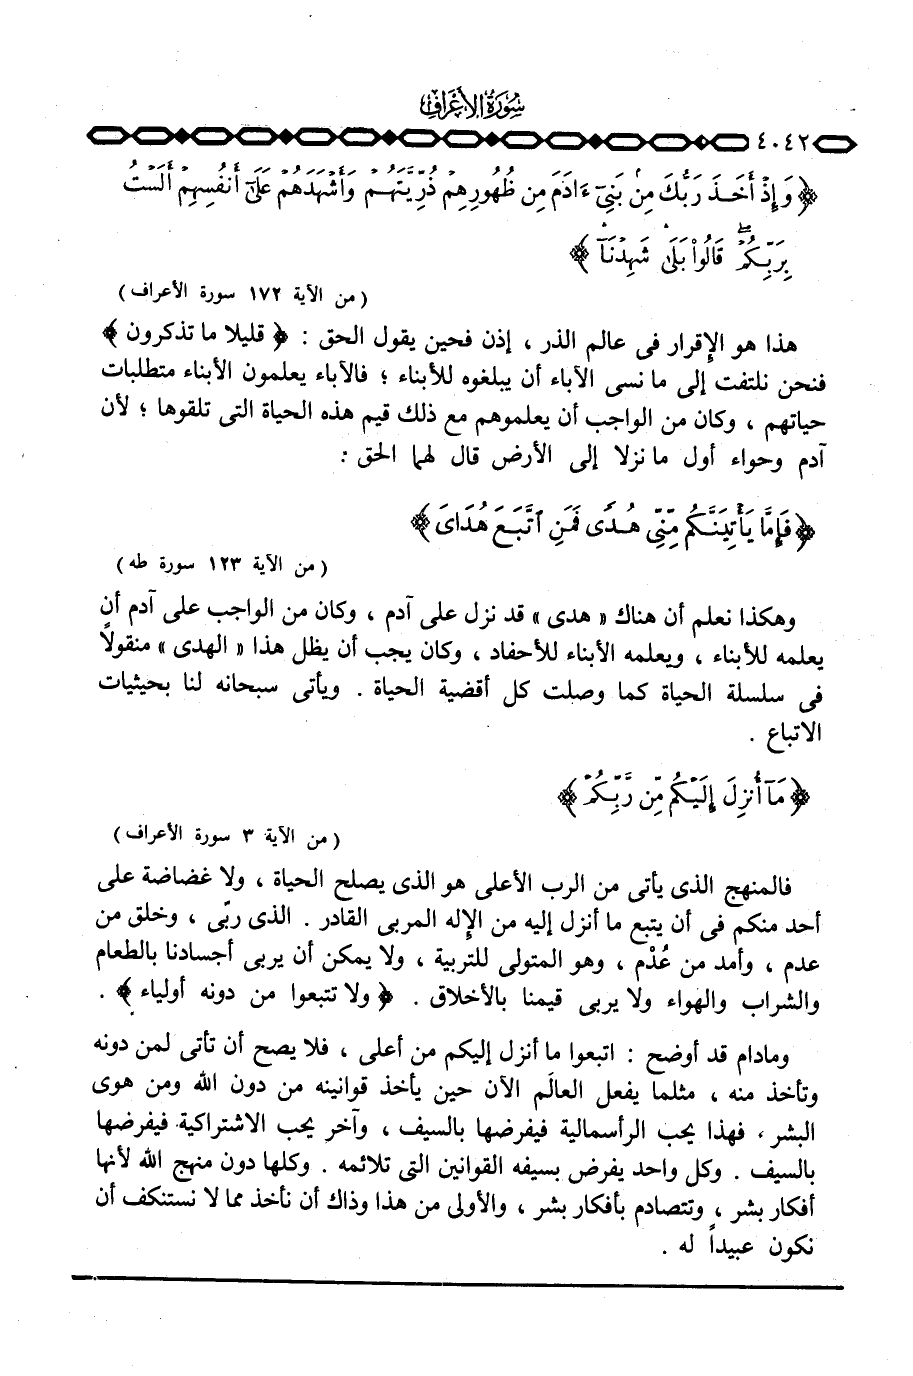 سورة الأعراف
٤٠٤٢
﴿ وَإِذْ أَخَذَ رَبُّكَ مِنۢ بَنِىٓ ءَادَمَ مِن ظُهُورِهِمْ ذُرِّيَّتَهُمْ وَأَشْهَدَهُمْ عَلَىٰٓ أَنفُسِهِمْ أَلَسْتُ
بِرَبِّكُمْ ۖ قَالُوا۟ بَلَىٰ ۛ شَهِدْنَآ ﴾
( من الآية ١٧٢ سورة الأعراف )
هذا هو الإقرار فى عالم الذر ، إذن فحين يقول الحق : ﴿ قليلا ما تذكرون ﴾
فنحن نلتفت إلى ما نسى الآباء أن يبلغوه للأبناء ؛ فالآباء يعلمون الأبناء متطلبات
حياتهم ، وكان من الواجب أن يعلموهم مع ذلك قيم هذه الحياة التى تلقوها ؛ لأن
آدم وحواء أول ما نزلا إلى الأرض قال لهما الحق :
﴿ فَإِمَّا يَأْتِيَنَّكُم مِّنِّى هُدًى فَمَنِ ٱتَّبَعَ هُدَاىَ ﴾
( من الآية ١٢٣ سورة طه )
وهكذا نعلم أن هناك « هدى » قد نزل على آدم ، وكان من الواجب على آدم أن
يعلمه للأبناء ، ويعلمه الأبناء للأحفاد ، وكان يجب أن يظل هذا « الهدى » منقولاً
فى سلسلة الحياة كما وصلت كل أقضية الحياة . ويأتى سبحانه لنا بحيثيات
الاتباع .
﴿ مَآ أُنزِلَ إِلَيْكُم مِّن رَّبِّكُمْ ﴾
( من الآية ٣ سورة الأعراف )
فالمنهج الذى يأتى من الرب الأعلى هو الذى يصلح الحياة ، ولا غضاضة على
أحد منكم فى أن يتبع ما أنزل إليه من الإله المربى القادر . الذى ربّى ، وخلق من
عدم ، وأمد من عُدْم ، وهو المتولى للتربية ، ولا يمكن أن يربى أجسادنا بالطعام
والشراب والهواء ولا يربى قيمنا بالأخلاق . ﴿ ولا تتبعوا من دونه أولياء ﴾ .
ومادام قد أوضح : اتبعوا ما أنزل إليكم من أعلى ، فلا يصح أن تأتى لمن دونه
وتأخذ منه ، مثلما يفعل العالَم الآن حين يأخذ قوانينه من دون الله ومن هوى
البشر ، فهذا يحب الرأسمالية فيفرضها بالسيف ، وآخر يحب الاشتراكية فيفرضها
بالسيف . وكل واحد يفرض بسيفه القوانين التى تلائمه . وكلها دون منهج الله لأنها
أفكار بشر ، وتتصادم بأفكار بشر ، والأولى من هذا وذاك أن نأخذ مما لا نستنكف أن
نكون عبيداً له .